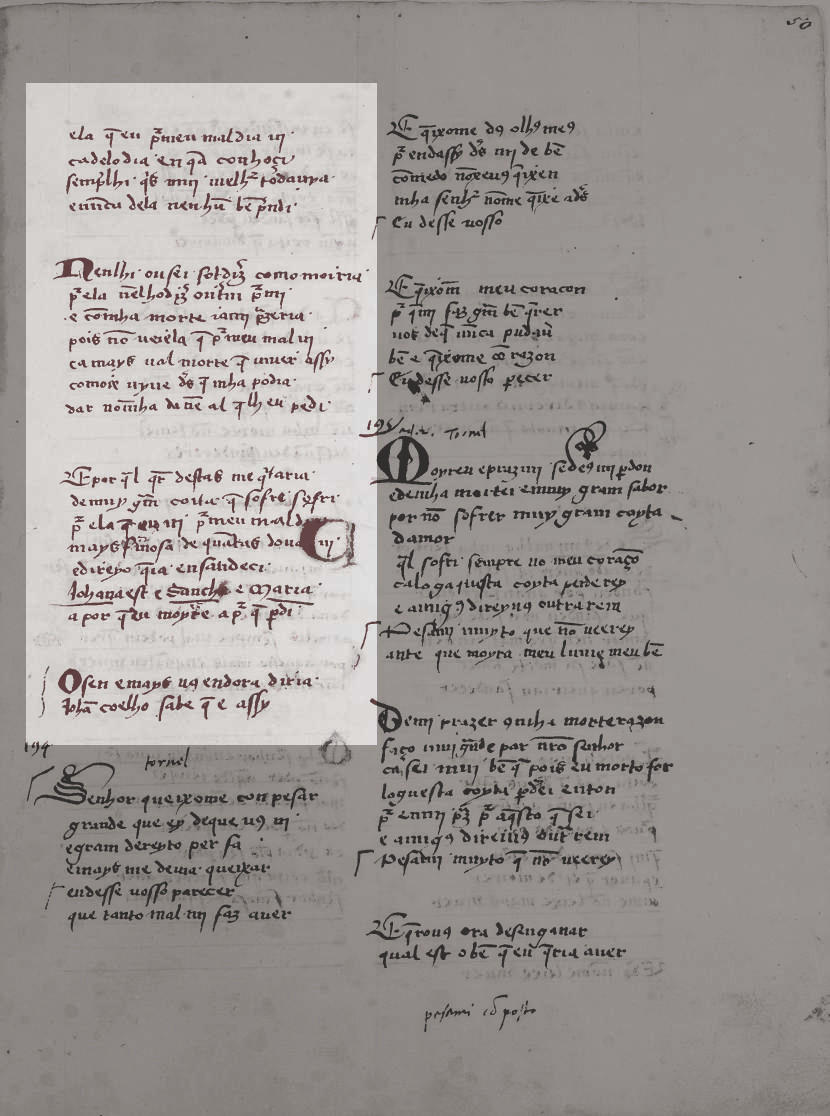 50
ela q̄ eu p̄ meu mal dia ui
cadelo dia en q̄a conhoçi
semp̄lhi q̄s miĩ melh̄r todauya
e nũca dela nenhũ bẽ p̄ndi
Nenlhi ousei sol diz̄ como moiria
p̄ ela nẽlho diz̄ out̃m p̄mi
e cõ mha morte ia miĩ p̄zeria
pois nõ ueiela q̄ p̄ meu mal ui
ca mays ual morte q̄ uiuer assy
como ie uyue d̄s q̄ mha podia
dar nõ mha de nẽ al q̄ lheu pedi
E por q̄l q̄r destas me q̄taria
de muy gm̄ coita q̄ sofre sofri
p̄ ela q̄ eu ui p̄ meu mal dia
mays fm̄osa de quãtas dona ui
e direyo q̄ia ensandeci
Johana est e Sancha e Maria
a por q̄ eu moyre a p̄ q̄ p̄di
Osen e mays uꝯ en dora diria
Johã coelho sabe q̄ e assy
194
tornel
Senhor queixome con pesar
grande que ey deque uꝯ ui
e gram dereyto per fa
e mays me deuia queixar
endesse uosso parecer
que tanto mal mi faz auer
E q̄ixome dꝯ olhꝯ meꝯ
p̄ endassy d̄s mi de bẽ
cõmedo nõ xeuꝯ q̄ixen
mha senhr̄ nõ me q̄ixe a d̄s
Eu desse uosso
E q̄ixom̄ meu coracon
p̄ q̄ mi faz gm̄ bẽ q̄rer
uos deq̄ nũca pudauẽ
bẽ e q̄ixome cõ razon
Eu desse uosso p̄ecer
195
tornel
Moyren e praz mi se deꝯ mi perdon
e de mha mortei e muy gram sabor
por nõ sofrer muy gram coyta
damor
q̄l sofri sempre no meu coraçõ
ca logaquesta coyta perderey
e amigꝯ direyuꝯ outra rem
Pesami muyto que nõ ueerey
ante que moyra meu lume meu bẽ
Demi prazer ꝯ mha morte razon
faço mui gm̄de par nr̄o senhor
ca sei mui bẽ q̄ pois eu morto for
loguesta coyta p̄dei enton
p̄ en mi p̄z p̄ aq̄sto q̄ sei
e amigꝯ direiuꝯ out̄ rem
Pesami muyto q̄ nõ ueerey
E q̄rouꝯ ora desenganar
qual est o bẽ q̄ eu q̄ria auer